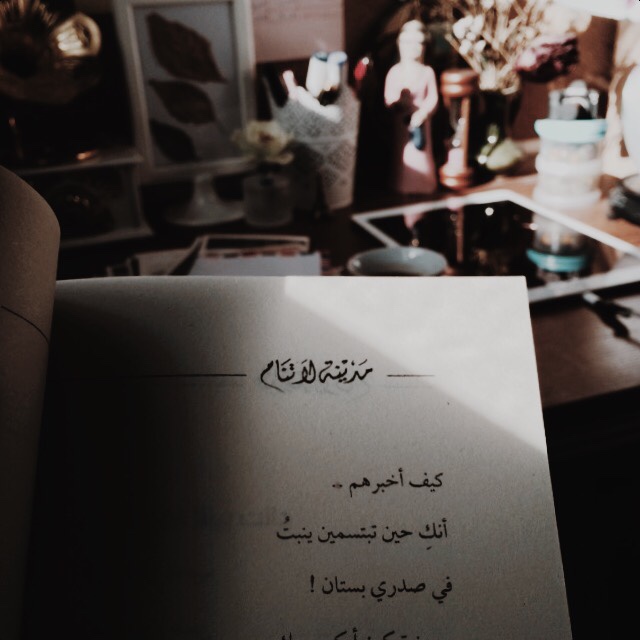 مدينة لا تنام
كيف أخبرهم -
أنكِ حين تبتسمين ينبتُ
في صدري بستان !